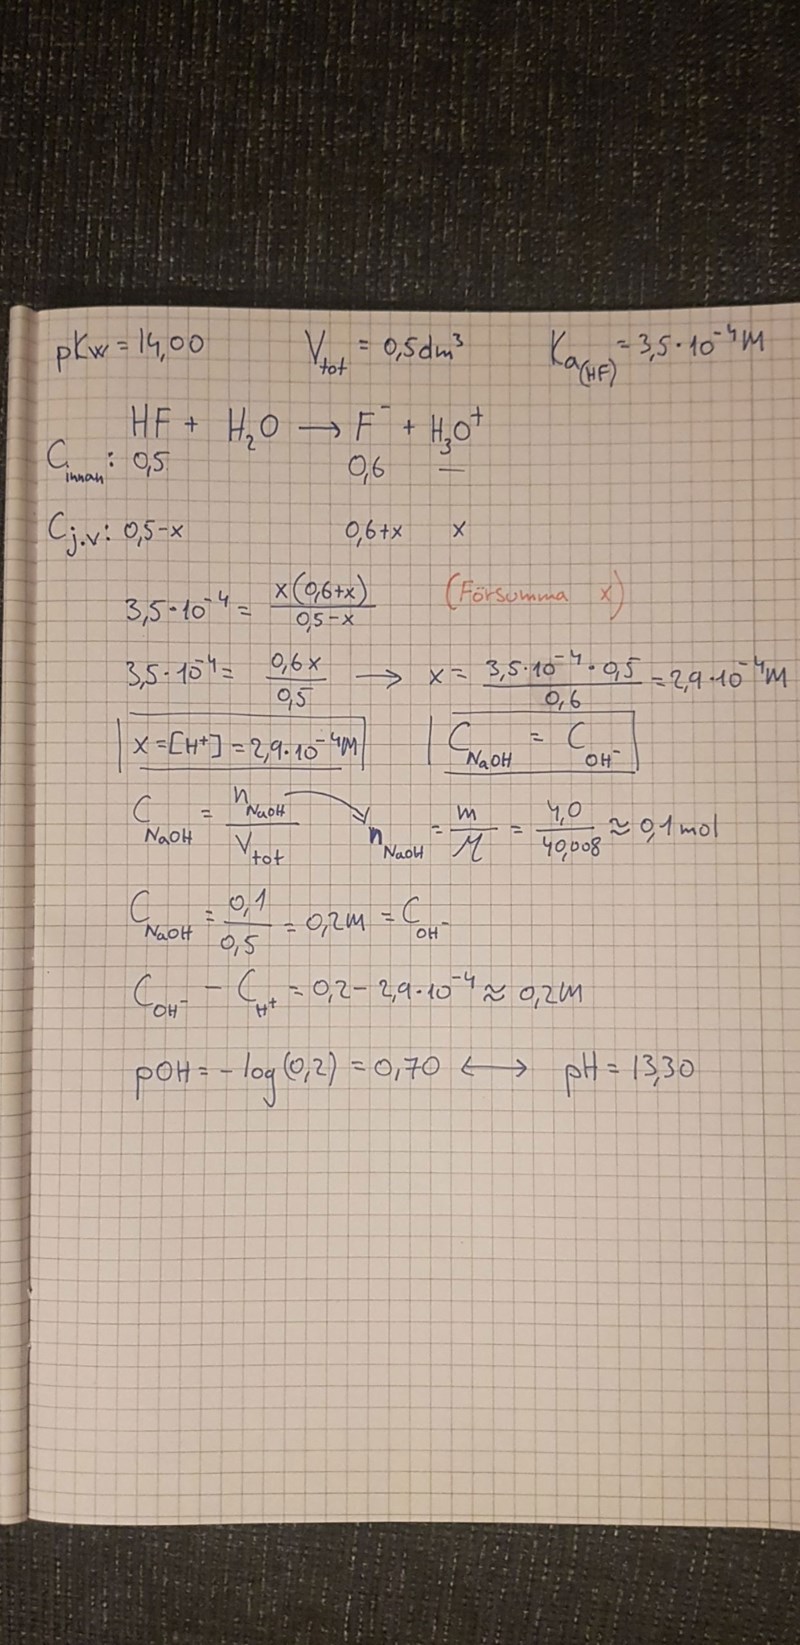 pKw = 14,00 Vtot = 0,5 dm³ Ka(HF) = 3,5·10⁻⁴ M
HF + H₂O → F⁻ + H₃O⁺
Cinnan: 0,5 0,6 —
Cj.v: 0,5-x 0,6+x x
3,5·10⁻⁴ = x(0,6+x) / 0,5-x (Försumma x)
3,5·10⁻⁴ = 0,6x / 0,5 → x = 3,5·10⁻⁴·0,5 / 0,6 = 2,9·10⁻⁴ M
x = [H⁺] = 2,9·10⁻⁴ M C_NaOH = C_OH⁻
C_NaOH = n_NaOH / Vtot n_NaOH = m / M = 4,0 / 40,008 ≈ 0,1 mol
C_NaOH = 0,1 / 0,5 = 0,2 M = C_OH⁻
C_OH⁻ - C_H⁺ = 0,2 - 2,9·10⁻⁴ ≈ 0,2 M
pOH = -log(0,2) = 0,70 ↔ pH = 13,30